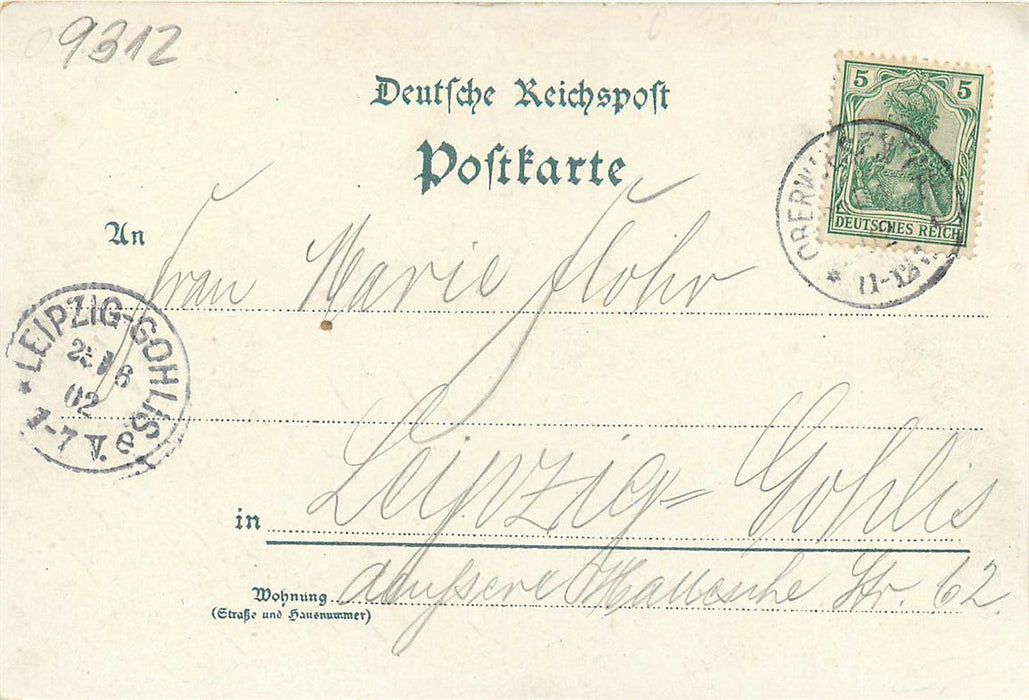 09312
Deutsche Reichspost
Postkarte
5 5
DEUTSCHES REICH
11-12
An Frau Marie Flohr
LEIPZIG-GOHLIS
6
02
V.
in Leipzig-Gohlis
Wohnung äussere Hallesche Str. 62.
(Straße und Hausnummer)